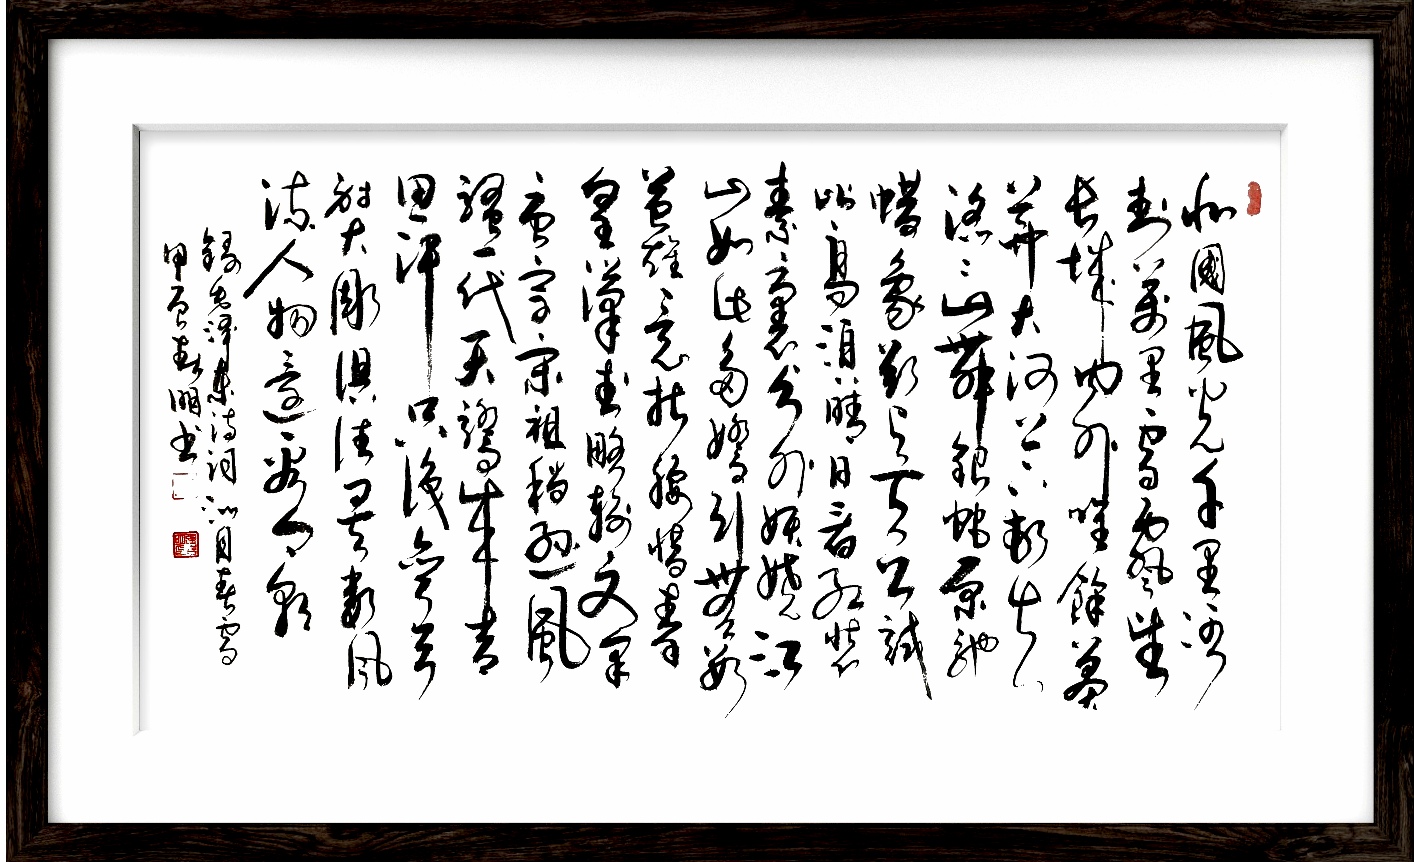 北國風光千里冰
封萬里雪飄望
長城內外唯餘莽
莽大河上下頓失
滔〻山舞銀蛇原馳
蠟象欲與天公試
比高須晴日看紅裝
素裹分外妖嬈江
山如此多嬌引無數
英雄競折腰惜秦
皇漢武略輸文采
唐宗宋祖稍遜風
騷一代天驕成吉
思汗只識彎弓
射大雕俱往矣數風
流人物還看今朝
錄毛澤東詩詞沁園春雪
甲辰春明書